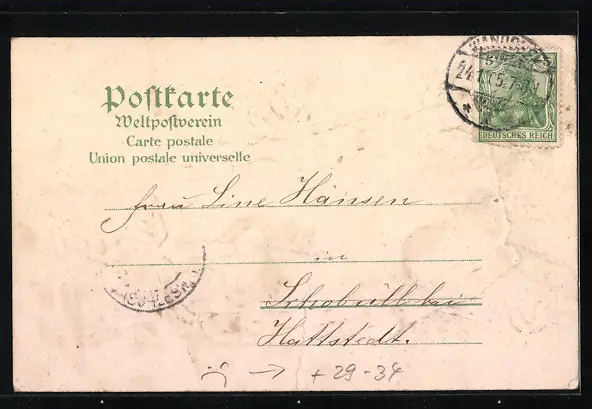 Postkarte
Weltpostverein
Carte postale
Union postale universelle
WANDSBEK
24.1.05.7-8N
DEUTSCHES REICH
Frau Line Hansen
in
Schobüll bei
Hattstedt.
(SCHLESW.)
→ +29-34